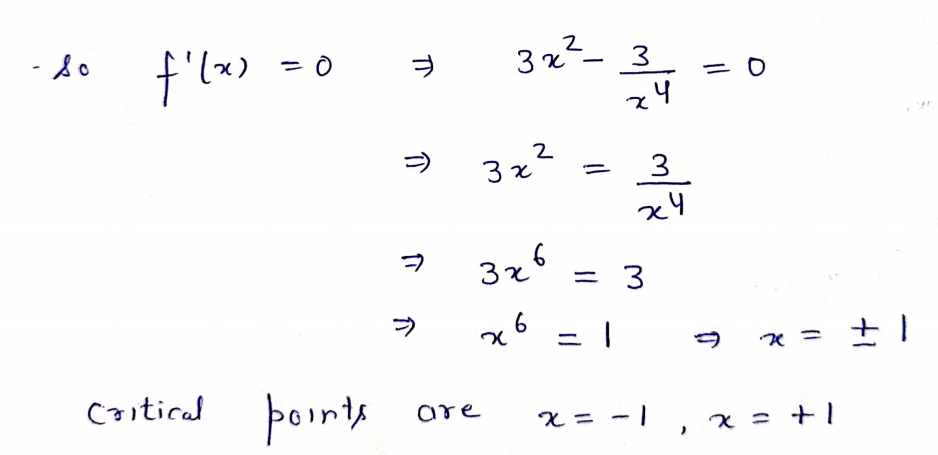 - so f'(x) = 0 ⇒ 3x² - 3/x⁴ = 0
⇒ 3x² = 3/x⁴
⇒ 3x⁶ = 3
⇒ x⁶ = 1 ⇒ x = ± 1
Critical points are x = -1 , x = +1